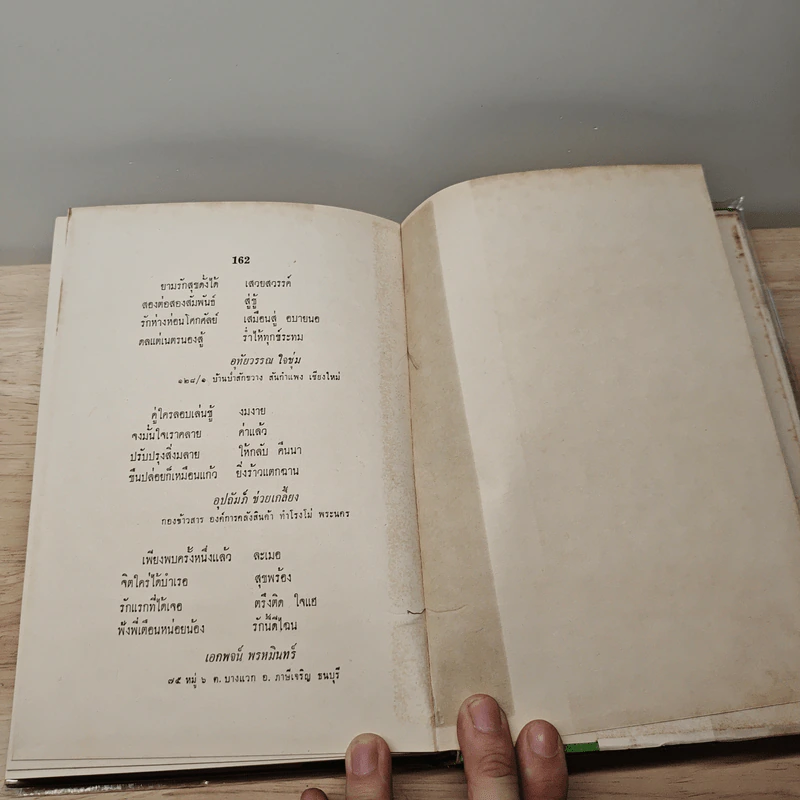 162
ยามรักสุขดั่งได้ เสวยสวรรค์
สองต่อสองสัมพันธ์ สู่ชู้
รักห่างห่อนโศกศัลย์ เสมือนสู่ อบายนอ
ดลแต่เนตรนองสู้ ร่ำไห้ทุกข์ระทม
อุทัยวรรณ ใจชุ่ม
๑๒๘/๑ บ้านบ่ำสักขวาง สันกำแพง เชียงใหม่
คู่ใครลอบเล่นชู้ งมงาย
จงมั่นใจเราคลาย ค่าแล้ว
ปรับปรุงสิ่งมลาย ให้กลับ คืนนา
ขืนปล่อยก็เหมือนแก้ว ยิ่งร้าวแตกฉาน
อุปถัมภ์ ช่วยเกลี้ยง
กองข้าวสาร องค์การคลังสินค้า ทำโรงโม่ พระนคร
เพียงพบครั้งหนึ่งแล้ว ละเมอ
จิตใคร่ได้บำเรอ สุขพร้อง
รักแรกที่ได้เจอ ตรึงติด ใจแฮ
ฟังพี่เตือนหน่อยน้อง รักนี้ดีไฉน
เอกพจน์ พรหมินทร์
๗๕ หมู่ ๖ ต. บางแวก อ. ภาษีเจริญ ธนบุรี